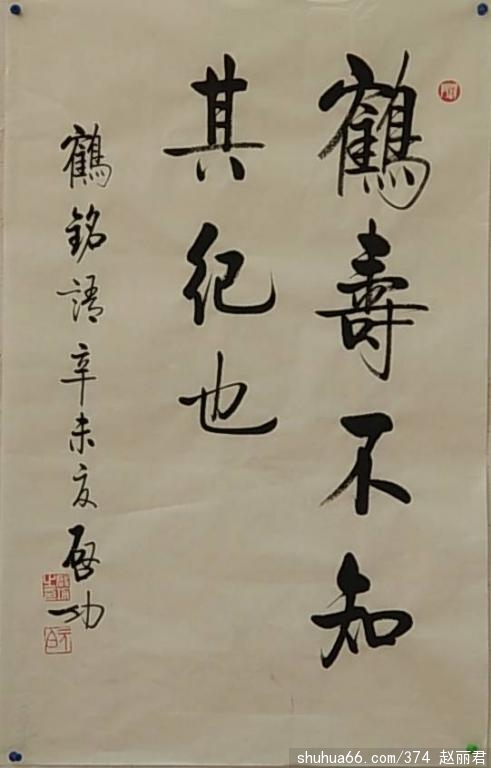 鶴壽不知
其纪也
鶴銘語辛未夏啓功
shuhua66.com/374 赵丽君